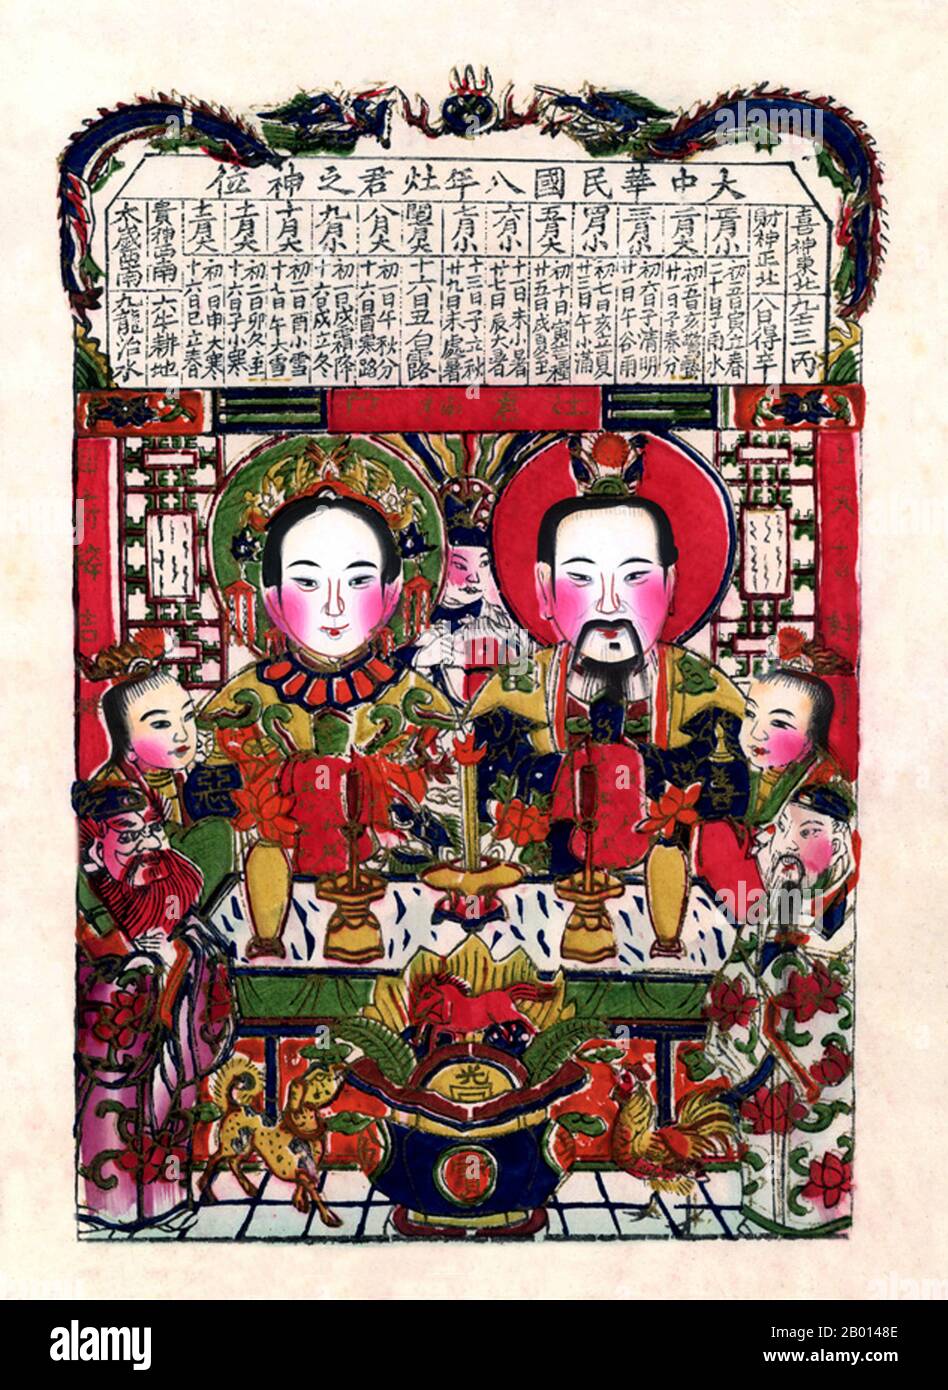 大中華民國八年灶君之神位
喜神東北
九壬三丙
財神正北
八日得辛
正月小
初五日寅立春
二十日子雨水
二月大
初五日亥驚蟄
廿一日子春分
三月小
初六日子清明
廿一日午谷雨
四月小
初七日亥立夏
廿三日午小滿
五月大
初十日寅芒種
廿五日戌夏至
六月小
十一日未小暑
廿七日辰大暑
七月小
十三日子立秋
廿九日未處暑
閏七月大
十六日丑白露
八月大
初一日午秋分
十六日酉寒路
九月小
初一日戌霜降
十六日戌立冬
十月大
初二日酉小雪
十七日午大雪
十一月大
初二日卯冬至
十六日子小寒
十二月大
初一日申大寒
十六日巳立春
貴神西南
六牛耕地
太歲西南
九龍治水
灶君神位
上天言好
善
惡
吉
光
alamy
Image ID: 2B0148E
www.alamy.com